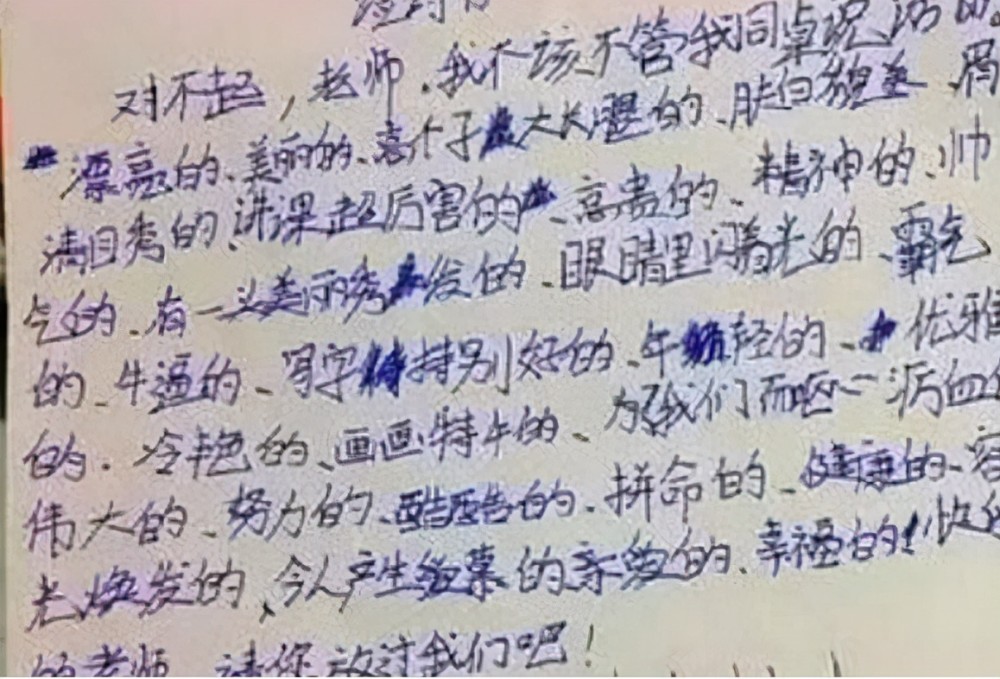 对不起，老师，我不该不管我同桌说话的。
漂亮的、美丽的、高个子大长腿的、肤白貌美、眉
清目秀的、讲课超厉害的、高贵的、精神的、帅
气的、有一头美丽秀发的、眼睛里闪着光的、霸气
的、牛逼的、写字特别好的、年轻的、优雅
的、冷艳的、画画特牛的、为了我们而呕心沥血的
伟大的、努力的、酷酷的、拼命的、健康的、容
光焕发的、令人产生羡慕的亲爱的、幸福的、快乐
的老师，请您放过我们吧！